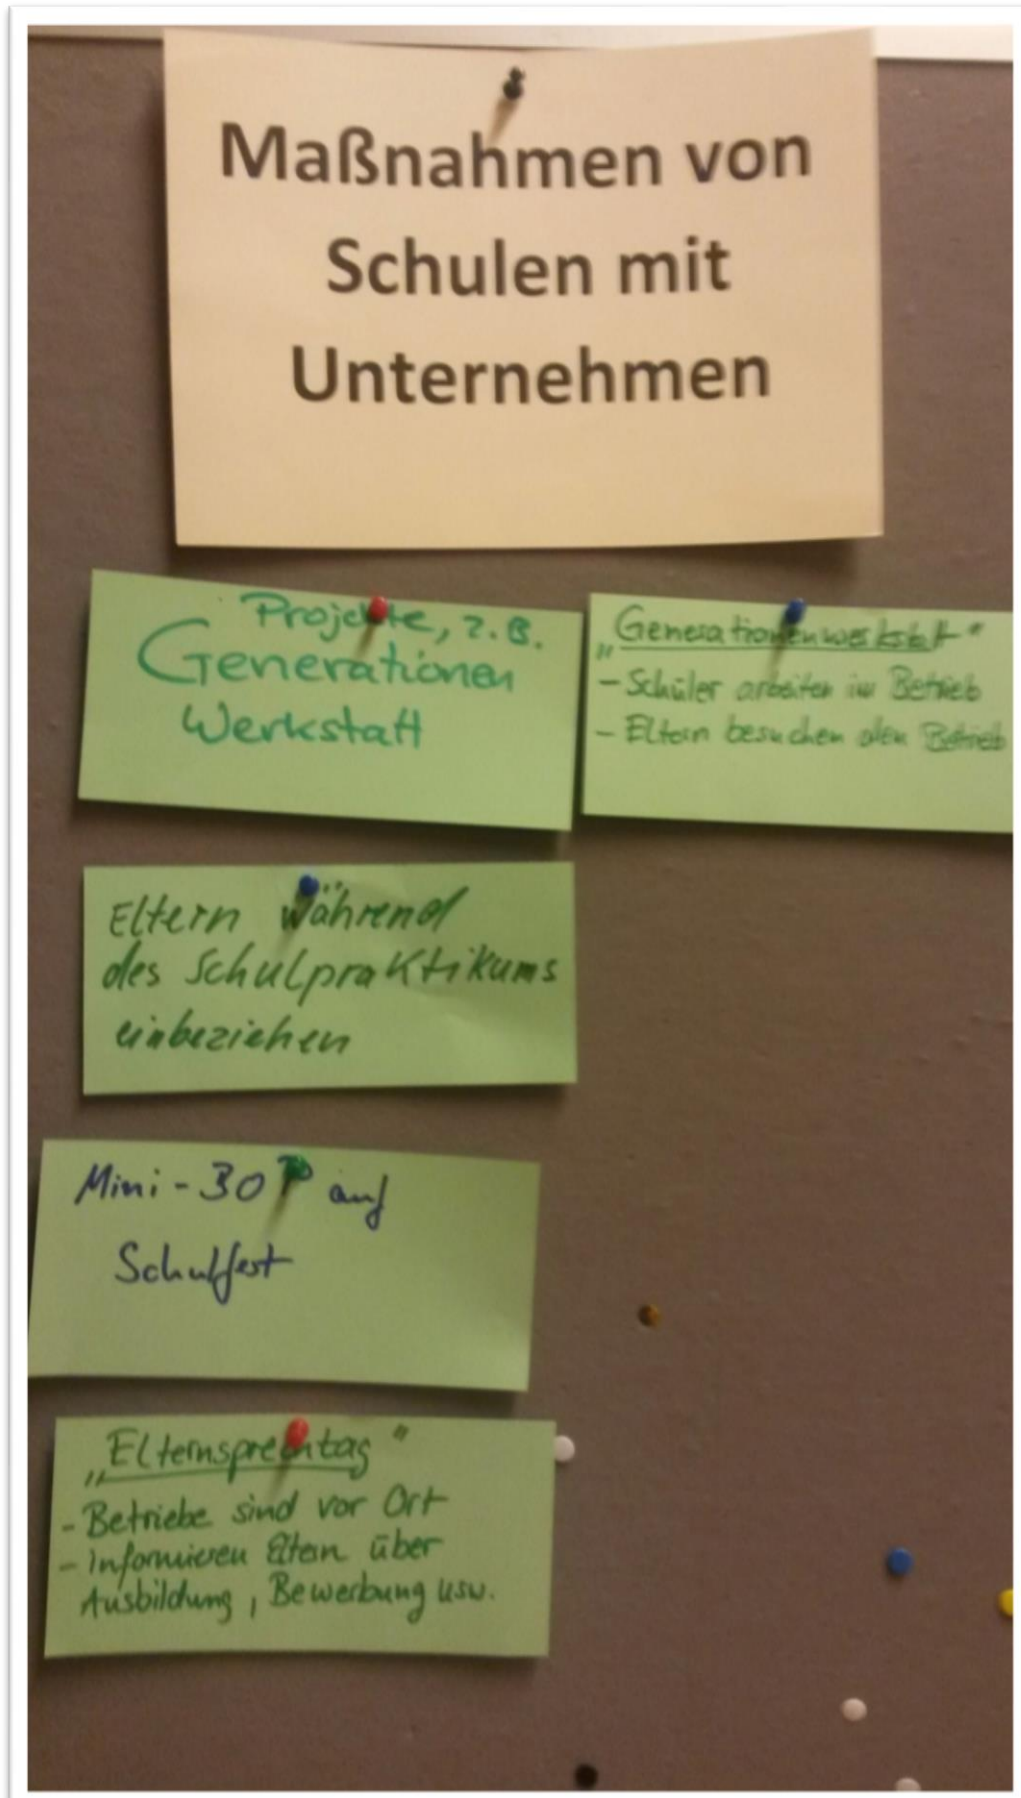 Maßnahmen von
Schulen mit
Unternehmen
Projekte, z.B.
Generationen
Werkstatt
„Generationenwerkstatt“
- Schüler arbeiten im Betrieb
- Eltern besuchen den Betrieb
Eltern während
des Schulpraktikums
einbeziehen
Mini - BOP auf
Schulfest
„Elternsprechtag“
- Betriebe sind vor Ort
- Informieren Eltern über
Ausbildung, Bewerbung usw.